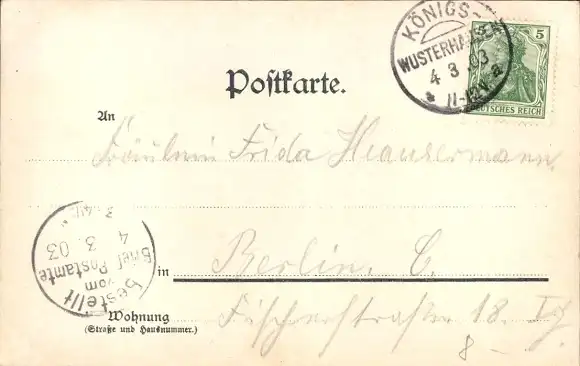 KÖNIGS-
WUSTERHAUSEN
4 3 .03
* 11-12V. a
5
DEUTSCHES REICH
Poſtkarte.
An
Fräulein Frida Heausermann
Bestellt
vom
Brief Postamte
4 3. 03
in Berlin. C.
Wohnung
(Straße und Hausnummer.)
Fischerstraße 18. IV
8